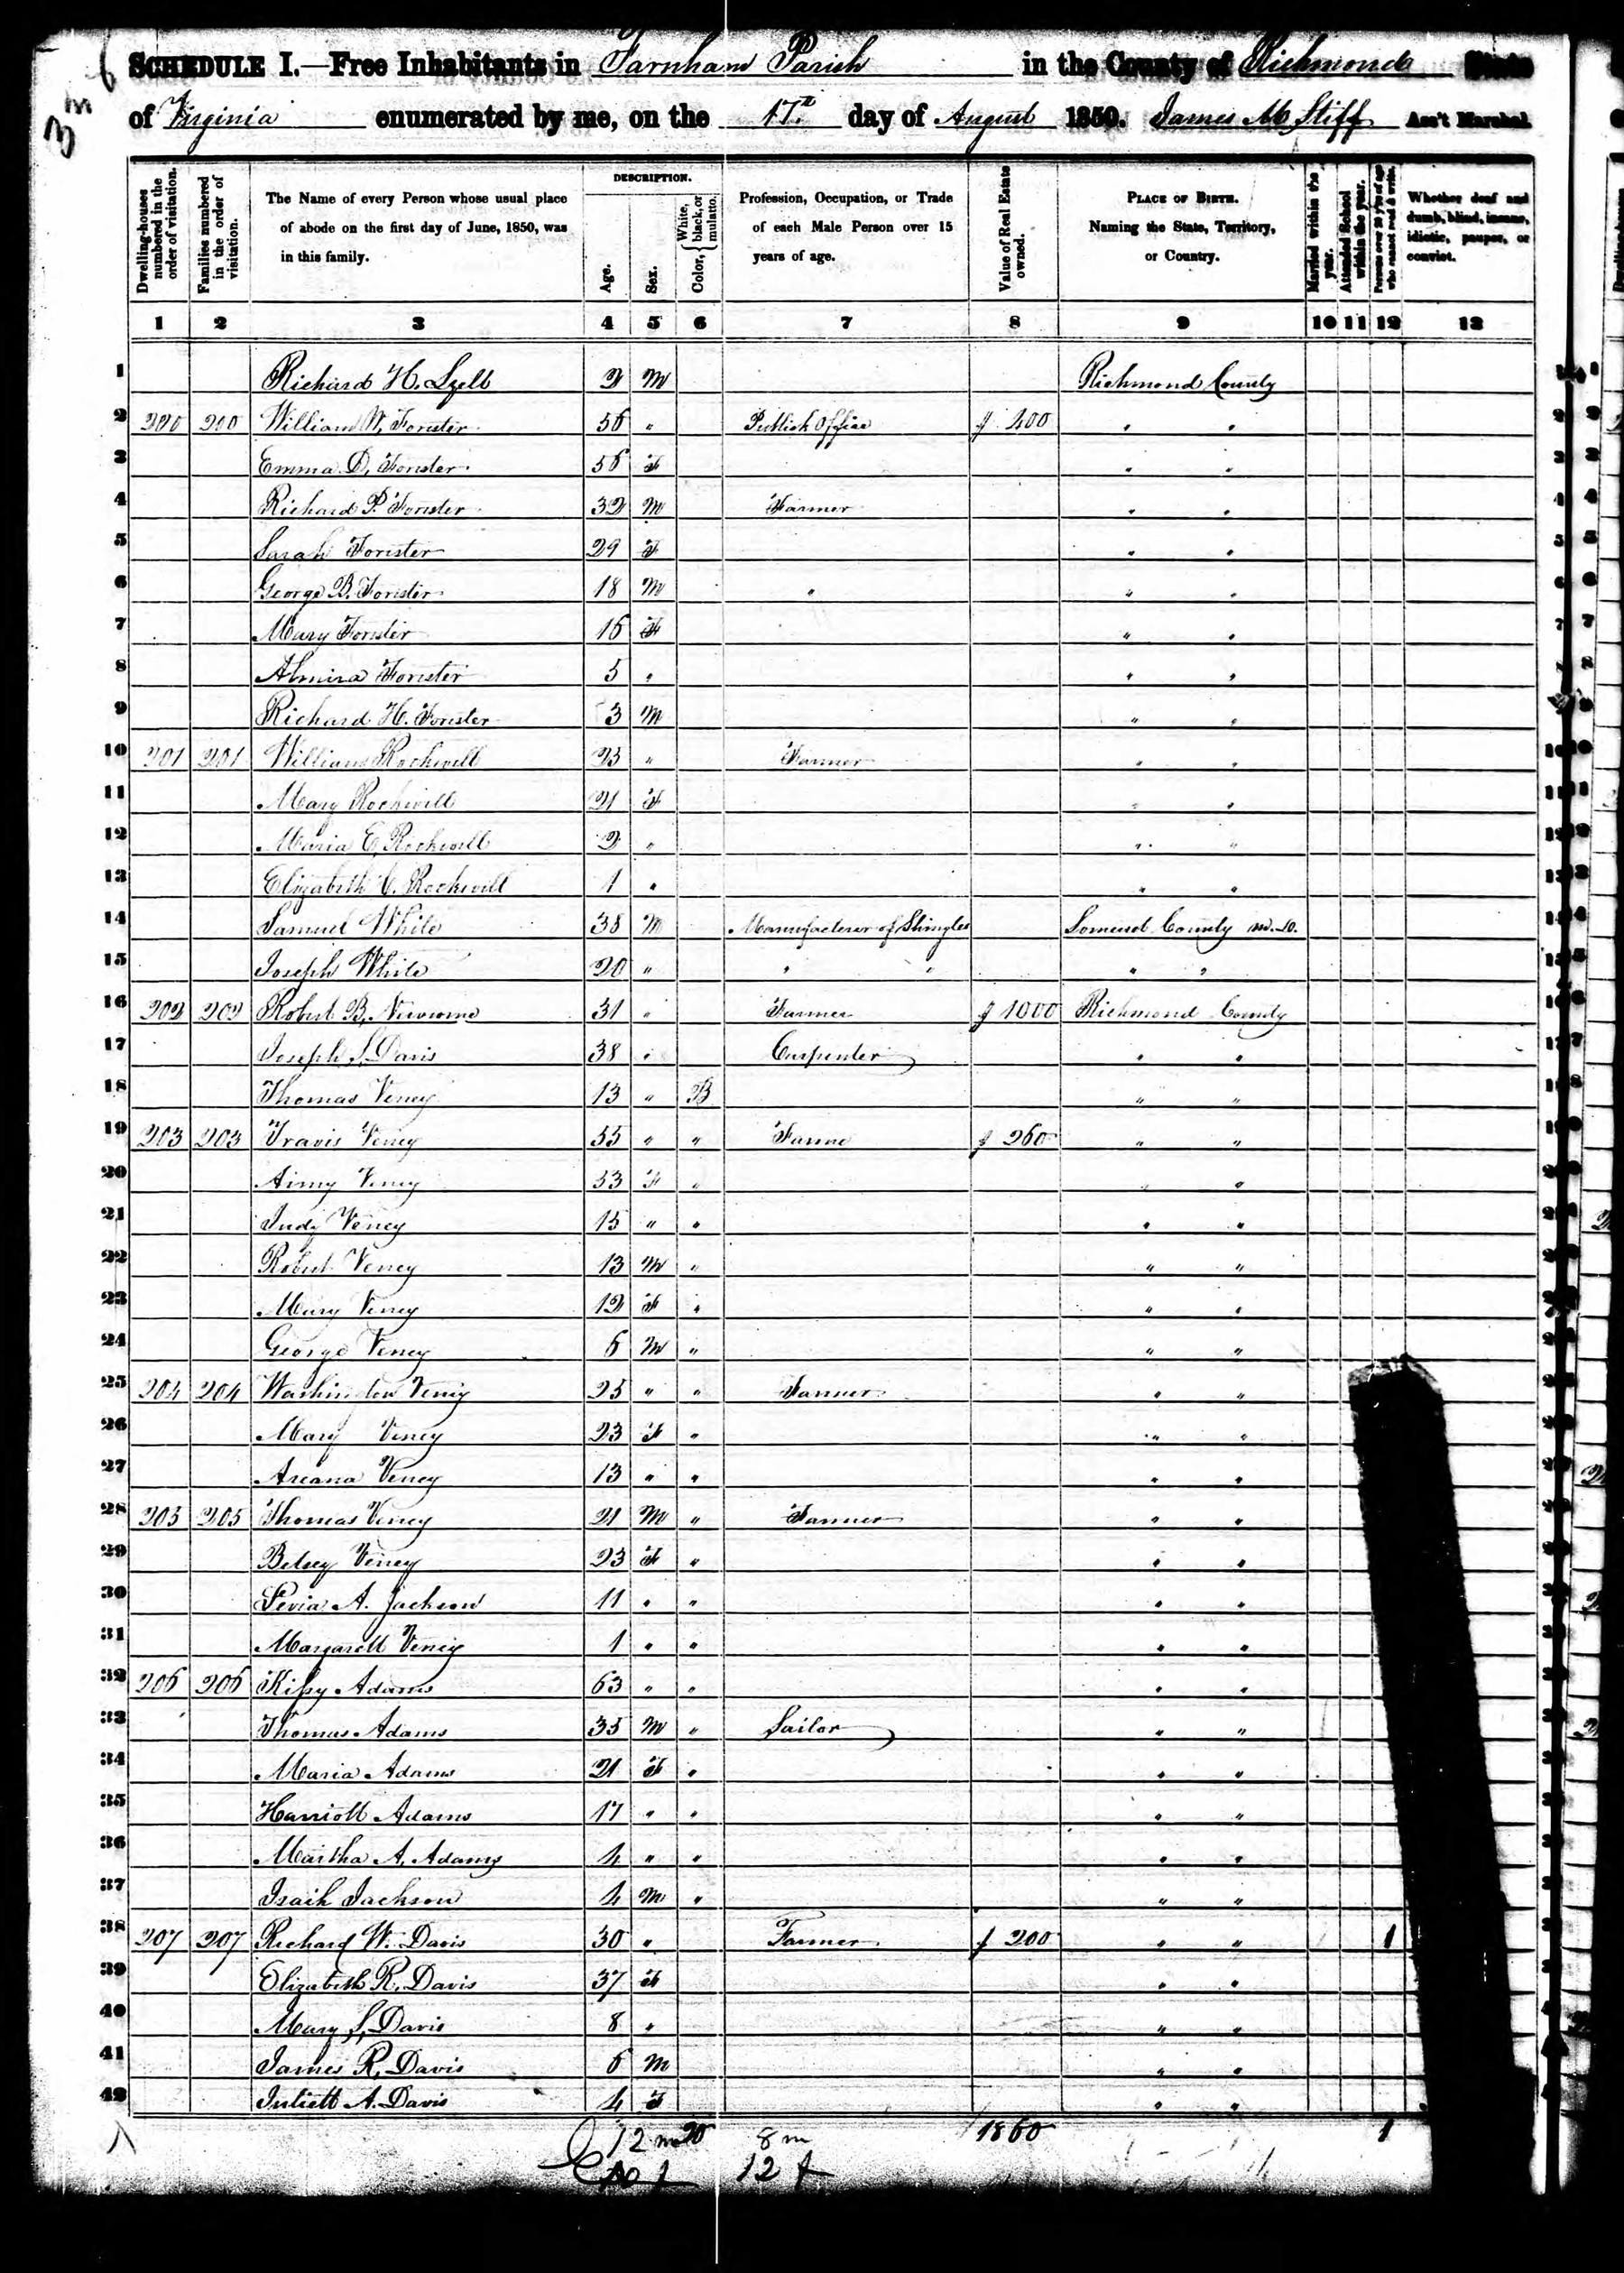 SCHEDULE I.—Free Inhabitants in Farnham Parish in the County of Richmond State
of Virginia enumerated by me, on the 17th day of August 1850. James M Stiff Ass't Marshal.
Dwelling-houses numbered in the order of visitation.
Families numbered in the order of visitation.
The Name of every Person whose usual place of abode on the first day of June, 1850, was in this family.
DESCRIPTION.
Age.
Sex.
Color, { White, black, or mulatto.
Profession, Occupation, or Trade of each Male Person over 15 years of age.
Value of Real Estate owned.
PLACE OF BIRTH. Naming the State, Territory, or Country.
Married within the year.
Attended School within the year.
Persons over 20 y'rs of age who cannot read & write.
Whether deaf and dumb, blind, insane, idiotic, pauper, or convict.
1 2 3 4 5 6 7 8 9 10 11 12 13
1 Richard H. Lyell 2 M Richmond County
2 200 200 William W. Forister 56 " Publick Office $ 400 " "
3 Emma D. Forister 56 F " "
4 Richard P. Forister 32 M Farmer " "
5 Sarah Forister 29 F " "
6 George B. Forister 18 M " " "
7 Mary Forister 16 F " "
8 Almira Forister 5 " " "
9 Richard H. Forister 3 M " "
10 201 201 William Rockwell 23 " Farmer " "
11 Mary Rockwell 21 F " "
12 Maria E. Rockwell 2 " " "
13 Elizabeth C. Rockwell 1 " " "
14 Samuel White 38 M Manufacterer of Shingles Somerset County M.D.
15 Joseph White 20 " " " " "
16 202 202 Robert B. Newsome 31 " Farmer $ 1000 Richmond County
17 Joseph S. Davis 38 " Carpenter " "
18 Thomas Veney 13 " B " "
19 203 203 Travis Veney 55 " " Farme $ 260 " "
20 Aimy Veney 53 F " " "
21 Judy Veney 15 " " " "
22 Robert Veney 13 M " " "
23 Mary Veney 12 F " " "
24 George Veney 6 M " " "
25 204 204 Washington Veney 25 " " Farmer " "
26 Mary Veney 23 F " " "
27 Areana Veney 13 " " " "
28 205 205 Thomas Veney 21 M " Farmer " "
29 Betsey Veney 23 F " " "
30 Levia A. Jackson 11 " " " "
31 Margarett Veney 1 " " " "
32 206 206 Kissy Adams 63 " " " "
33 Thomas Adams 35 M " Sailor " "
34 Maria Adams 21 F " " "
35 Harriott Adams 17 " " " "
36 Martha A. Adams 4 " " " "
37 Isaih Jackson 4 M " " "
38 207 207 Richard W. Davis 30 " Farmer $ 200 " " 1
39 Elizabeth R. Davis 37 F " "
40 Mary S. Davis 8 " " "
41 James R. Davis 6 M " "
42 Juliett A. Davis 4 F " "
12 m 20 8 m 1860 1
10 f 12 f